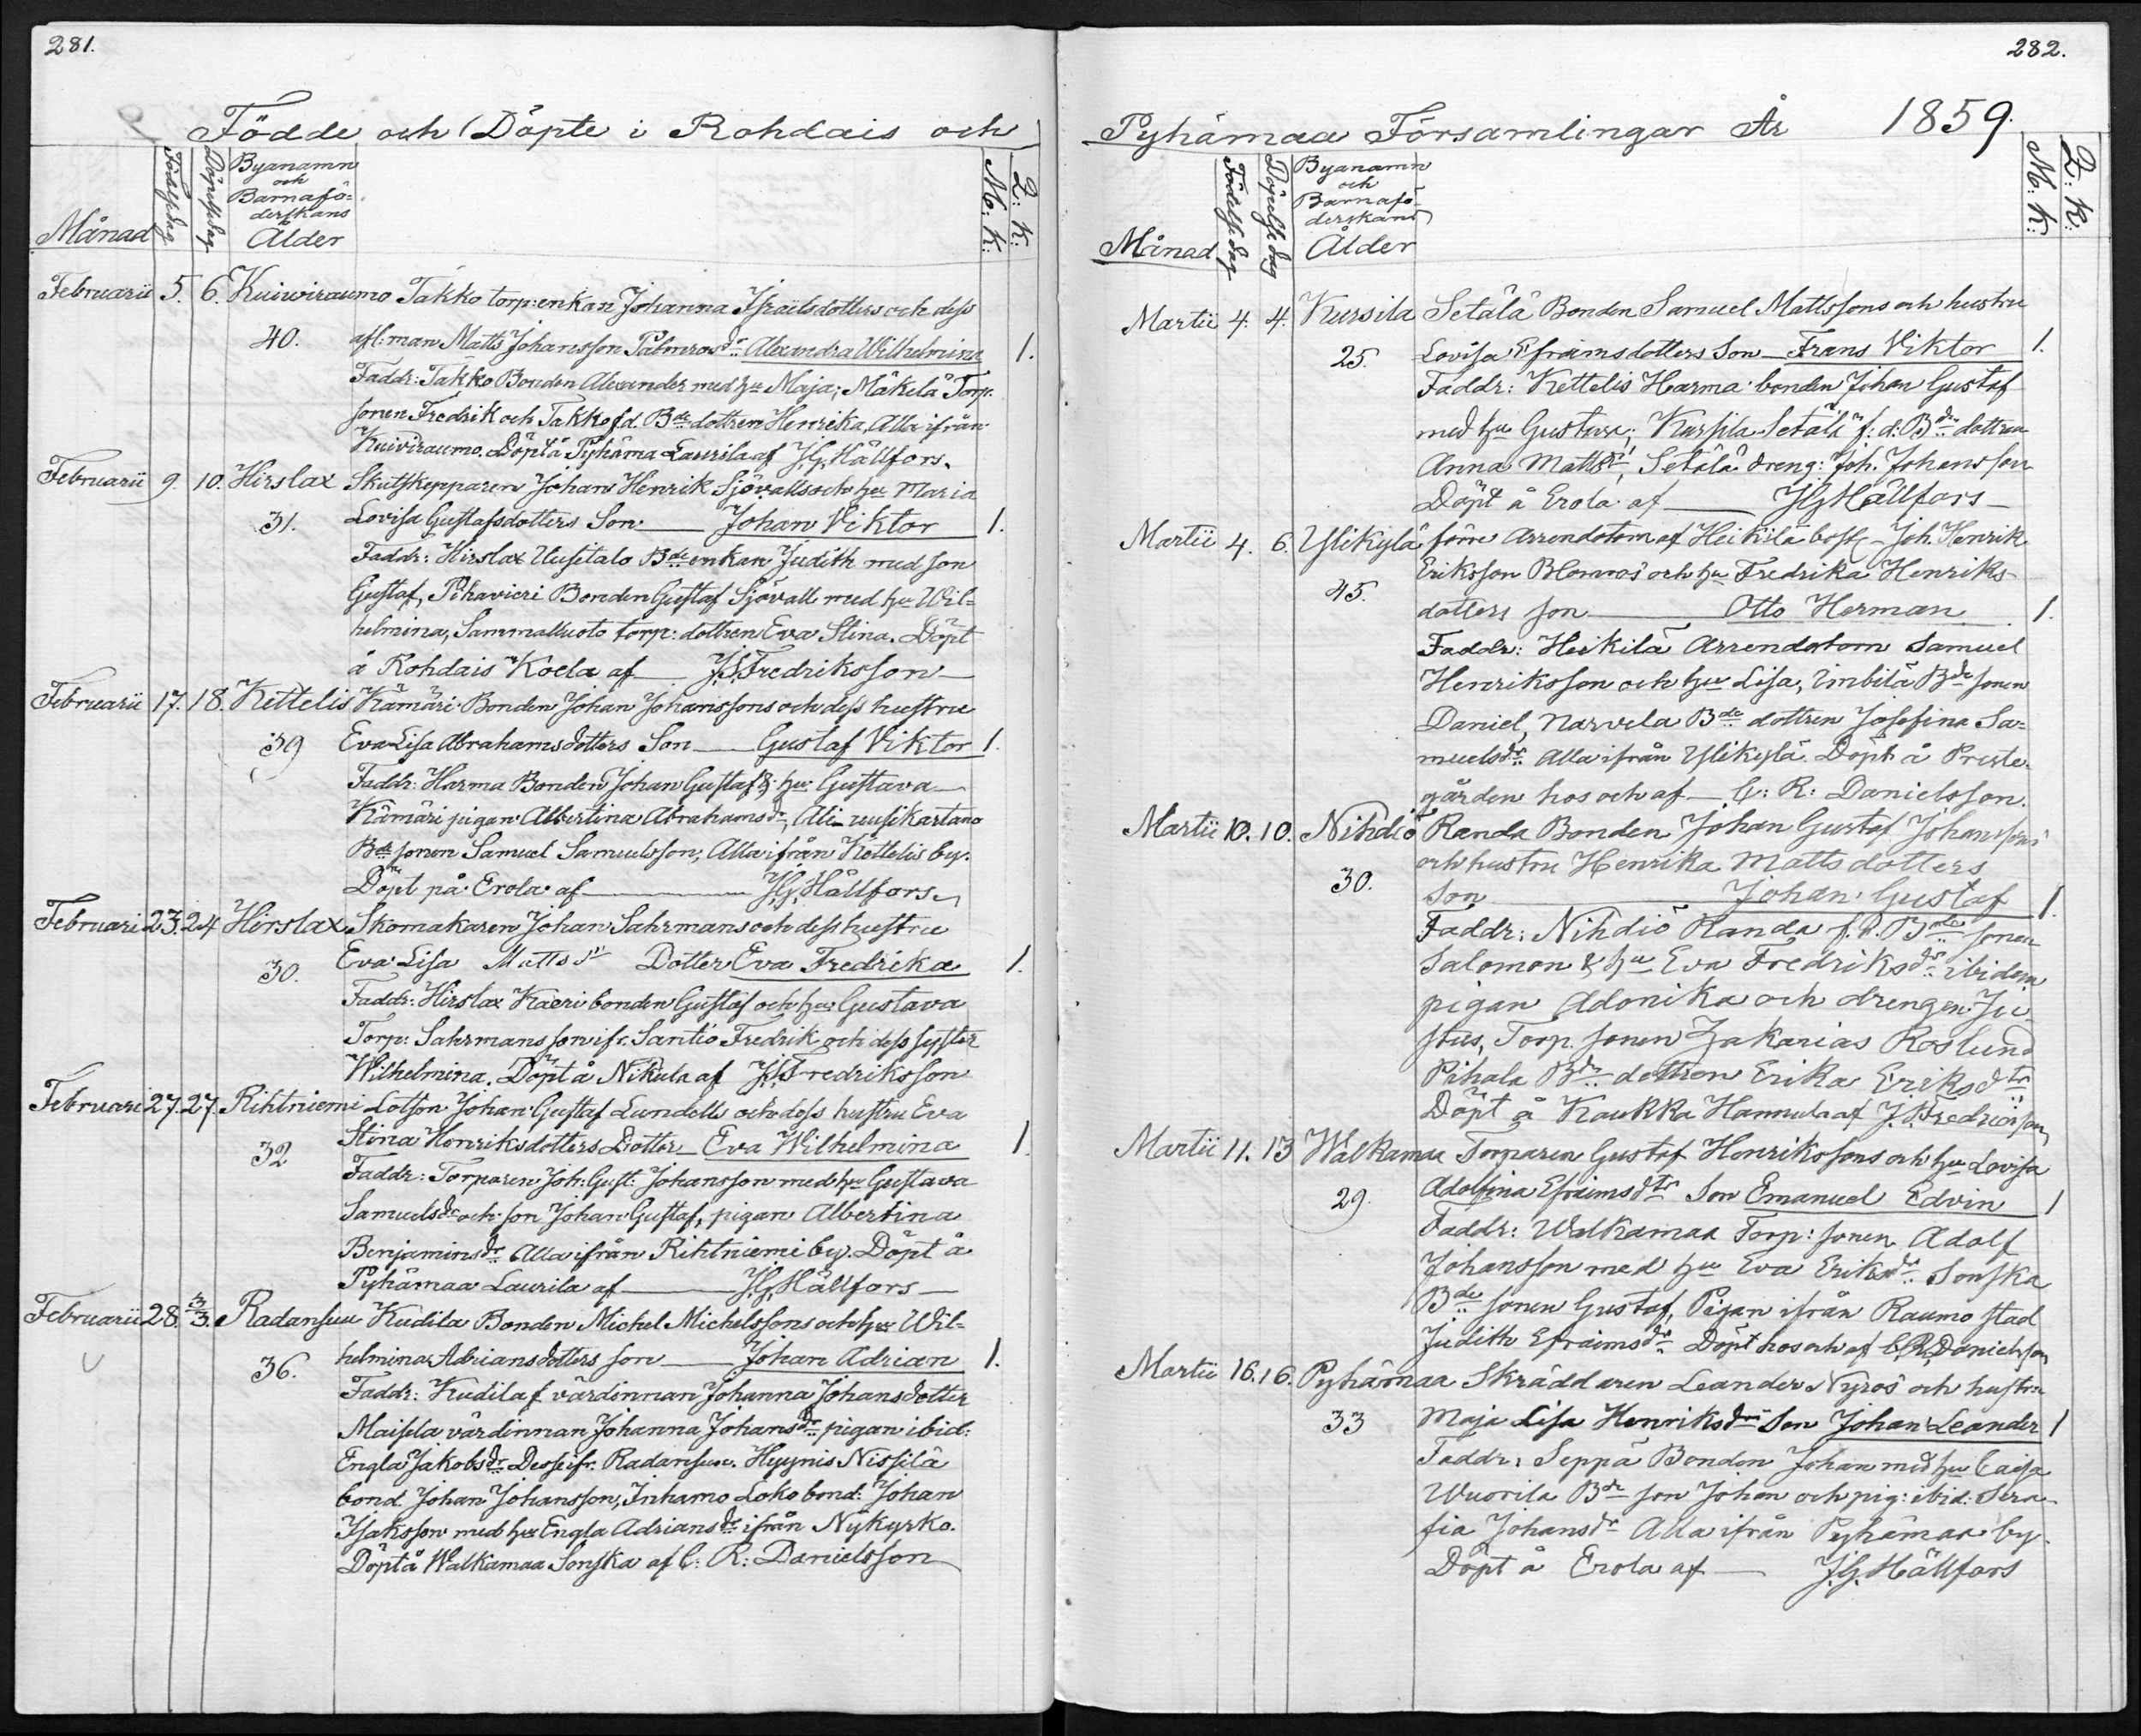 281.
Födde och Döpte i Rohdais och
Månad
Födelsedag
Döpelsedag
Byanamn
och
Barnafö-
derskans
Ålder
M: K:
Q: K:
Februarii 5. 6. Kuiwiraumo Takko torp:enkan Johanna Israelsdotters och dess
40. afl: man Matts Johansson Palmros dr Alexandra Wilhelmina 1.
Faddr: Takko Bonden Alexander med hu Maja; Mäkelä Torp:
sonen Fredrik och Takko f.d. Bde dottren Henrika, Alla ifrån
Kuiviraumo. Döpt å Pyhäma Laurila af J.G. Hällfors.
Februarii 9. 10. Hirslax Skutskepparen Johan Henrik Sjövalls och hu Maria
31. Lovisa Gustafsdotters Son Johan Viktor 1.
Faddr: Hirslax Uusitalo Bde enkan Judith med son
Gustaf, Pihavieri Bonden Gustaf Sjövall med hu Wil-
helmina, Sammalluoto torp: dottren Eva Stina. Döpt
å Rohdais Koela af J.S. Fredriksson
Februarii 17. 18. Kettelis Kämäri Bonden Johan Johanssons och dess hustru
39 Eva Lisa Abrahamsdotters Son Gustaf Viktor 1.
Faddr: Harma Bonden Johan Gustaf & hu Gustava
Kämäri pigan Albertina Abrahams dr, Ali-uusikartano
Bde sonen Samuel Samuelsson, Alla ifrån Kettelis by.
Döpt på Erola af J.G. Hällfors
Februari 23. 24 Hirslax Skomakaren Johan Sahrmans och dess hustru
30. Eva Lisa Matts dr Dotter Eva Fredrika 1.
Faddr: Hirslax Kaeri bonden Gustaf och hu Gustava
Torp: Sahrmans son ifr. Santio Fredrik och dess syster
Wilhelmina. Döpt å Nikula af J.S. Fredriksson
Februari 27. 27. Rihtniemi Lotson Johan Gustaf Lundells och dess hustru Eva
32 Stina Henriksdotters Dotter Eva Wilhelmina 1.
Faddr: Torparen Joh: Gust: Johansson med hu Gustava
Samuelsdr och son Johan Gustaf, pigan Albertina
Benjamins dr Alla ifrån Rihtniemi by. Döpt å
Pyhämaa Laurila af J.G. Hällfors
Februarii 28. 3/3. Radansuu Kudila Bonden Michel Michelssons och hu Wil-
36. helmina Adriansdotters son Johan Adrian 1.
Faddr: Kudila f. värdinnan Johanna Johansdotter
Maisila värdinnan Johanna Johansdr pigan ibid:
Engla Jakobsdr Desse ifr. Radansuu. Hyynis Nissilä
bond. Johan Johansson, Inhamo Loko bond: Johan
Isaksson med hu Engla Adriansdr ifrån Nykyrko.
Döpt å Walkamaa Sonska af C: R: Danielsson
282.
Pyhämaa Församlingar År 1859.
Månad
Födelsedag
Döpelsedag
Byanamn
och
Barnafö-
derskans
Ålder
M: K:
Q: K:
Martii 4. 4. Kursila Setälä Bonden Samuel Mattssons och hustru
25. Lovisa Efraimsdotters Son Frans Viktor 1.
Faddr: Kettelis Harma bonden Johan Gustaf
med hu Gustava; Kursila Setälä f: d: Bde dottren
Anna Matts dr, Setälä dreng: Joh. Johansson
Döpt å Erola af J G Hällfors
Martii 4. 6. Ylikylä förre Arrendatorn af Heikilä bost. Joh. Henrik
45. Eriksson Blomros och hu Fredrika Henriks
dotters son Otto Herman 1.
Faddr: Heikilä Arrendatorn Samuel
Henriksson och hu Lisa, Imbilä Bde sonen
Daniel, Narvela Bde dottren Josefina Sa-
muelsdr. Alla ifrån Ylikylä. Döpt å Preste-
gården hos och af C: R: Danielsson.
Martii 10. 10. Nihdiö Randa Bonden Johan Gustaf Johanssons
och hustru Henrika Mattsdotters
30. Son Johan Gustaf 1.
Faddr: Nihdiö Randa f. d. Bde sonen
Salomon & hu Eva Fredriksdr ibidem
pigan Adonika och drengen Ju-
stus, Torp. sonen Zakarias Roslund
Pihala Bde dottren Erika Eriks dtr
Döpt å Kaukka Hannula af J. S. Fredriksson
Martii 11. 13 Walkamaa Torparen Gustaf Henrikssons och hu Lovisa
29. Adolfina Efraims dtr Son Emanuel Edvin 1
Faddr: Walkamaa Torp: sonen Adolf
Johansson med hu Eva Eriksdr Sonska
Bde sonen Gustaf, Pigan ifrån Raumo stad
Judith Efraimsdr Döpt hos och af C. R. Danielsson
Martii 16. 16. Pyhämaa Skräddaren Leander Nyros och hustru
33 Maja Lisa Henriksdrs Son Johan Leander 1
Faddr: Seppä Bonden Johan med hu Caisa
Wuorila Bde son Johan och pig: ibid: Sera-
fia Johansdr Alla ifrån Pyhämaa by.
Döpt å Erola af J.G. Hällfors